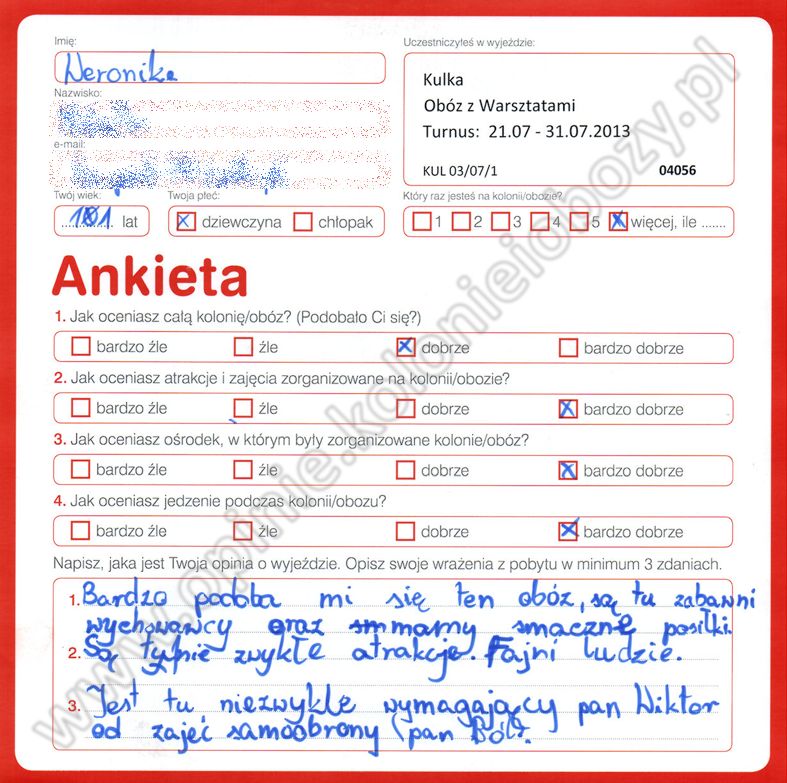 Imię:
Weronika
Uczestniczyłeś w wyjeździe:
Kulka
Obóz z Warsztatami
Turnus: 21.07 - 31.07.2013
KUL 03/07/1 04056
Nazwisko:
e-mail:
Twój wiek:
lat
Twoja płeć:
dziewczyna chłopak
Który raz jesteś na kolonii/obozie?
1 2 3 4 5 więcej, ile .......
Ankieta
1. Jak oceniasz całą kolonię/obóz? (Podobało Ci się?)
bardzo źle źle dobrze bardzo dobrze
2. Jak oceniasz atrakcje i zajęcia zorganizowane na kolonii/obozie?
bardzo źle źle dobrze bardzo dobrze
3. Jak oceniasz ośrodek, w którym były zorganizowane kolonie/obóz?
bardzo źle źle dobrze bardzo dobrze
4. Jak oceniasz jedzenie podczas kolonii/obozu?
bardzo źle źle dobrze bardzo dobrze
Napisz, jaka jest Twoja opinia o wyjeździe. Opisz swoje wrażenia z pobytu w minimum 3 zdaniach.
1. Bardzo podoba mi się ten obóz, są tu zabawni
wychowawcy oraz mamy smaczne posiłki.
2. Są zwykłe atrakcje. Fajni ludzie.
3. Jest tu niezwykle wymagający pan Wiktor
od zajęć samoobrony (pan Ból).
www.opinie.kolonieiobozy.pl